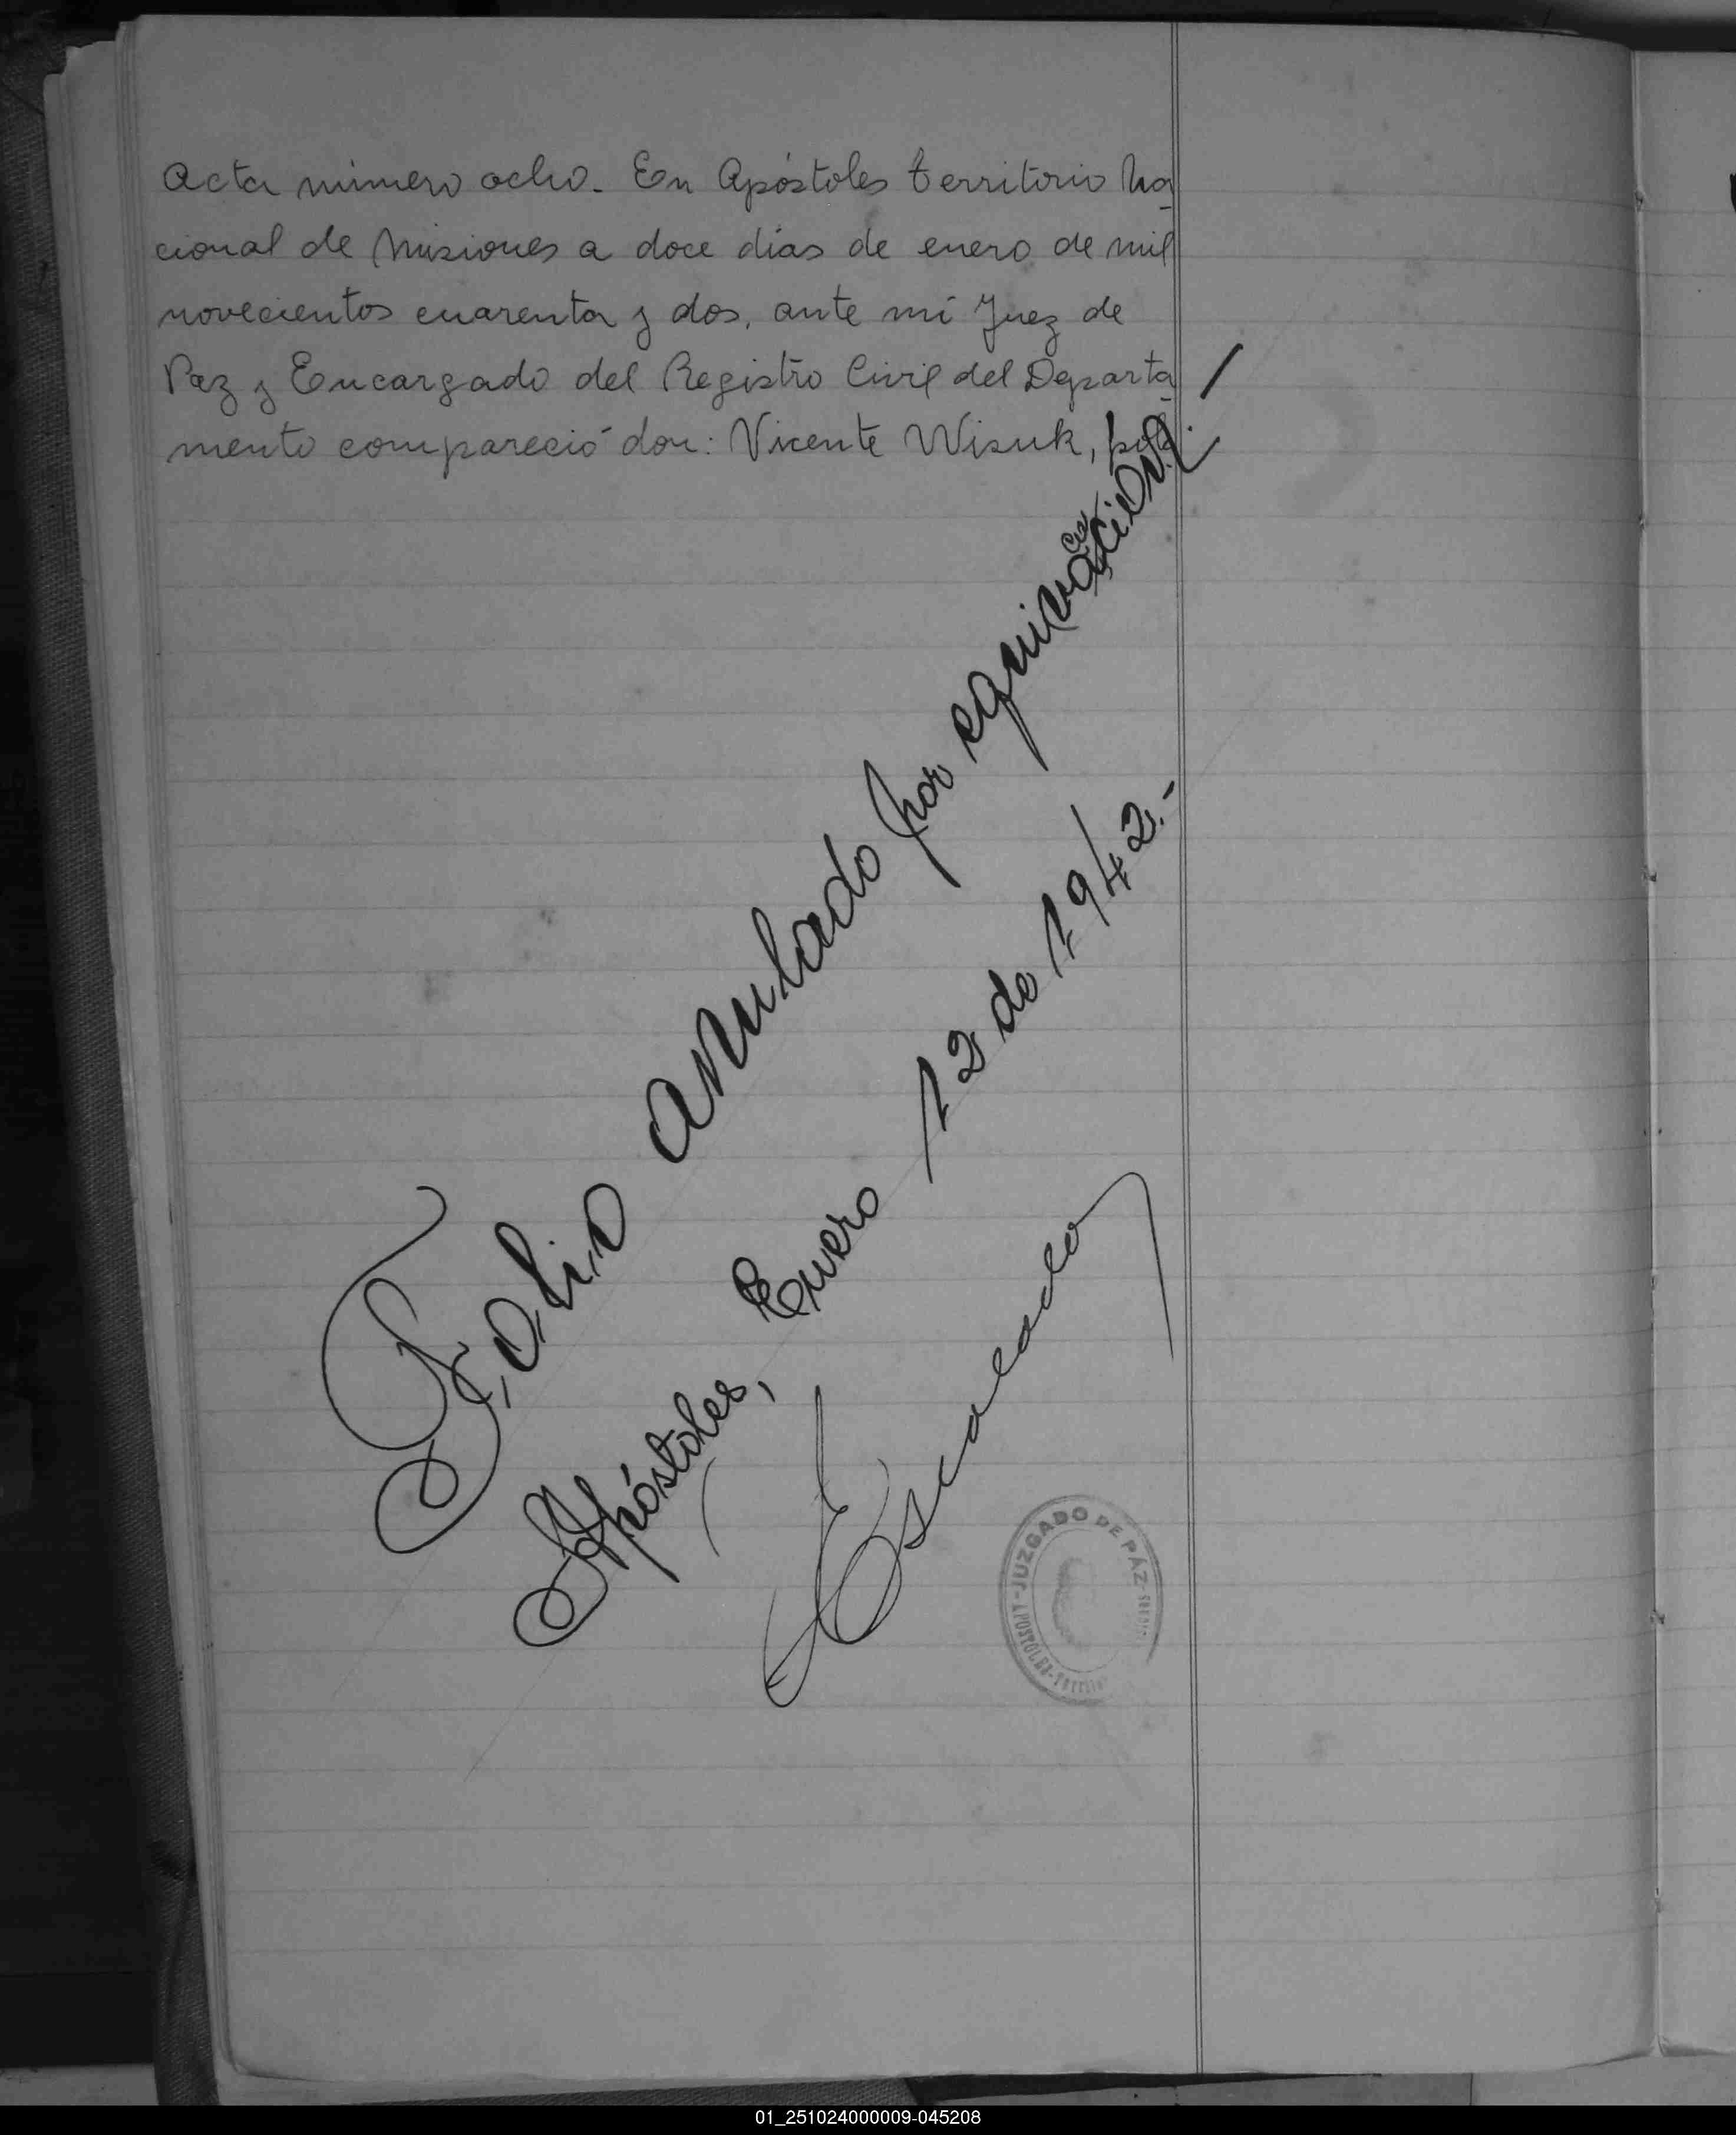 Acta número ocho. En Apóstoles territorio Na
cional de Misiones a doce días de enero de mil
novecientos cuarenta y dos, ante mí Juez de
Paz y Encargado del Registro Civil del Departa
mento compareció don: Vicente Wisuk,
Folio anulado por equivocación.
Apóstoles, Enero 12 de 1942.-
Escalada
JUZGADO DE PAZ
APOSTOLES
01_251024000009-045208